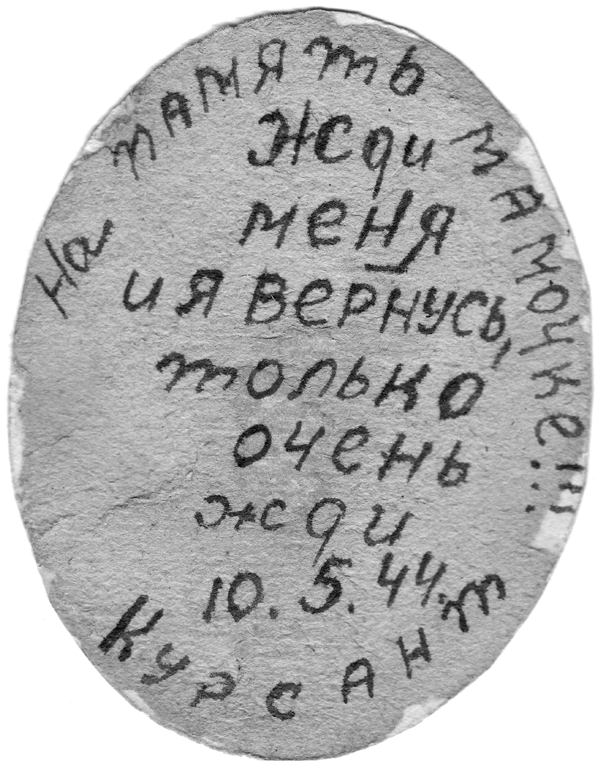 На память мамочке!!!
Жди
меня
и я вернусь,
только
очень
жди
10.5.44.
Курсант